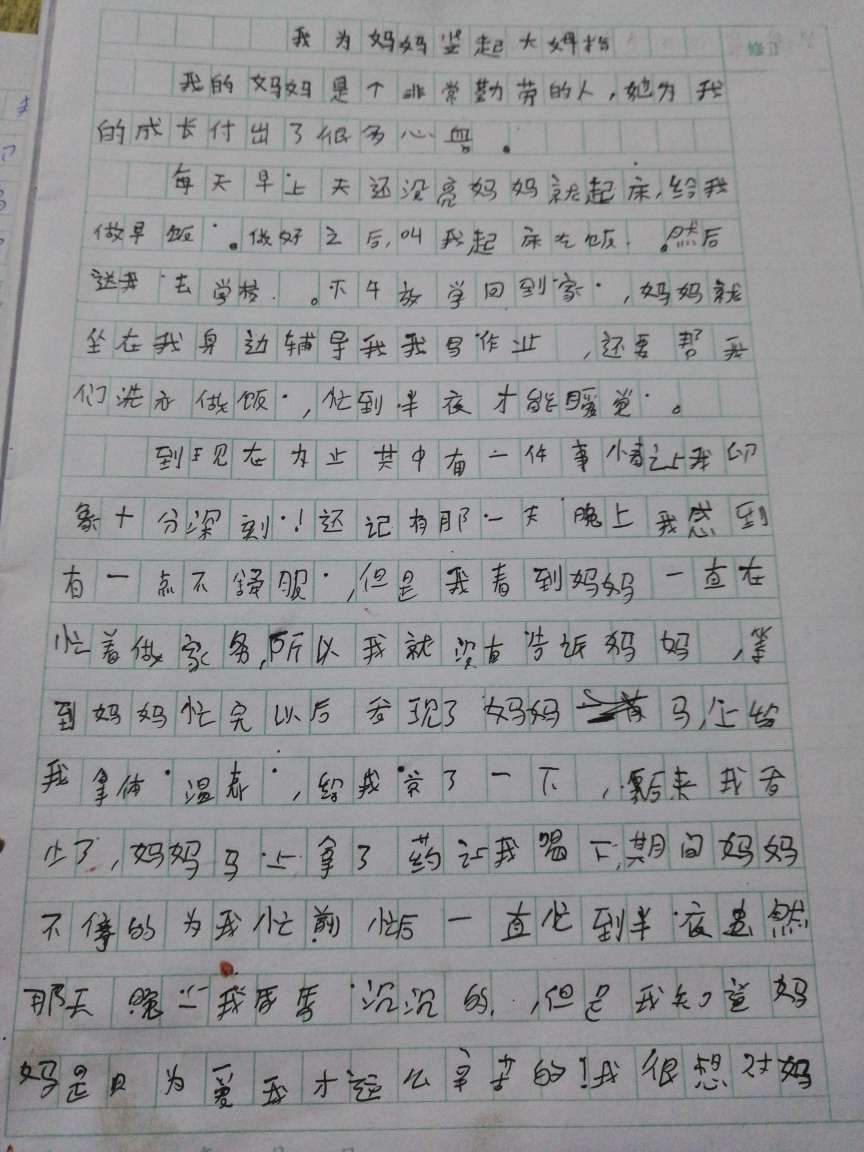 我为妈妈竖起大姆指
我的妈妈是个非常勤劳的人，她为我
的成长付出了很多心血。
每天早上天还没亮妈妈就起床，给我
做早饭。做好之后，叫我起床吃饭。然后
送我去学校。下午放学回到家，妈妈就
坐在我身边辅导我我写作业，还要帮我
们洗衣做饭，忙到半夜才能睡觉。
到现在为止其中有一件事情让我印
象十分深刻！还记有那一天晚上我感到
有一点不舒服，但是我看到妈妈一直在
忙着做家务，所以我就没有告诉妈妈，等
到妈妈忙完以后发现了妈妈马上给
我拿体温表，给我量了一下，后来我
了，妈妈马上拿了药让我喝下，期间妈妈
不停的为我忙前忙后一直忙到半夜虽然
那天晚上我昏沉沉的，但是我知道妈
妈是因为爱我才这么辛苦的！我很想对妈